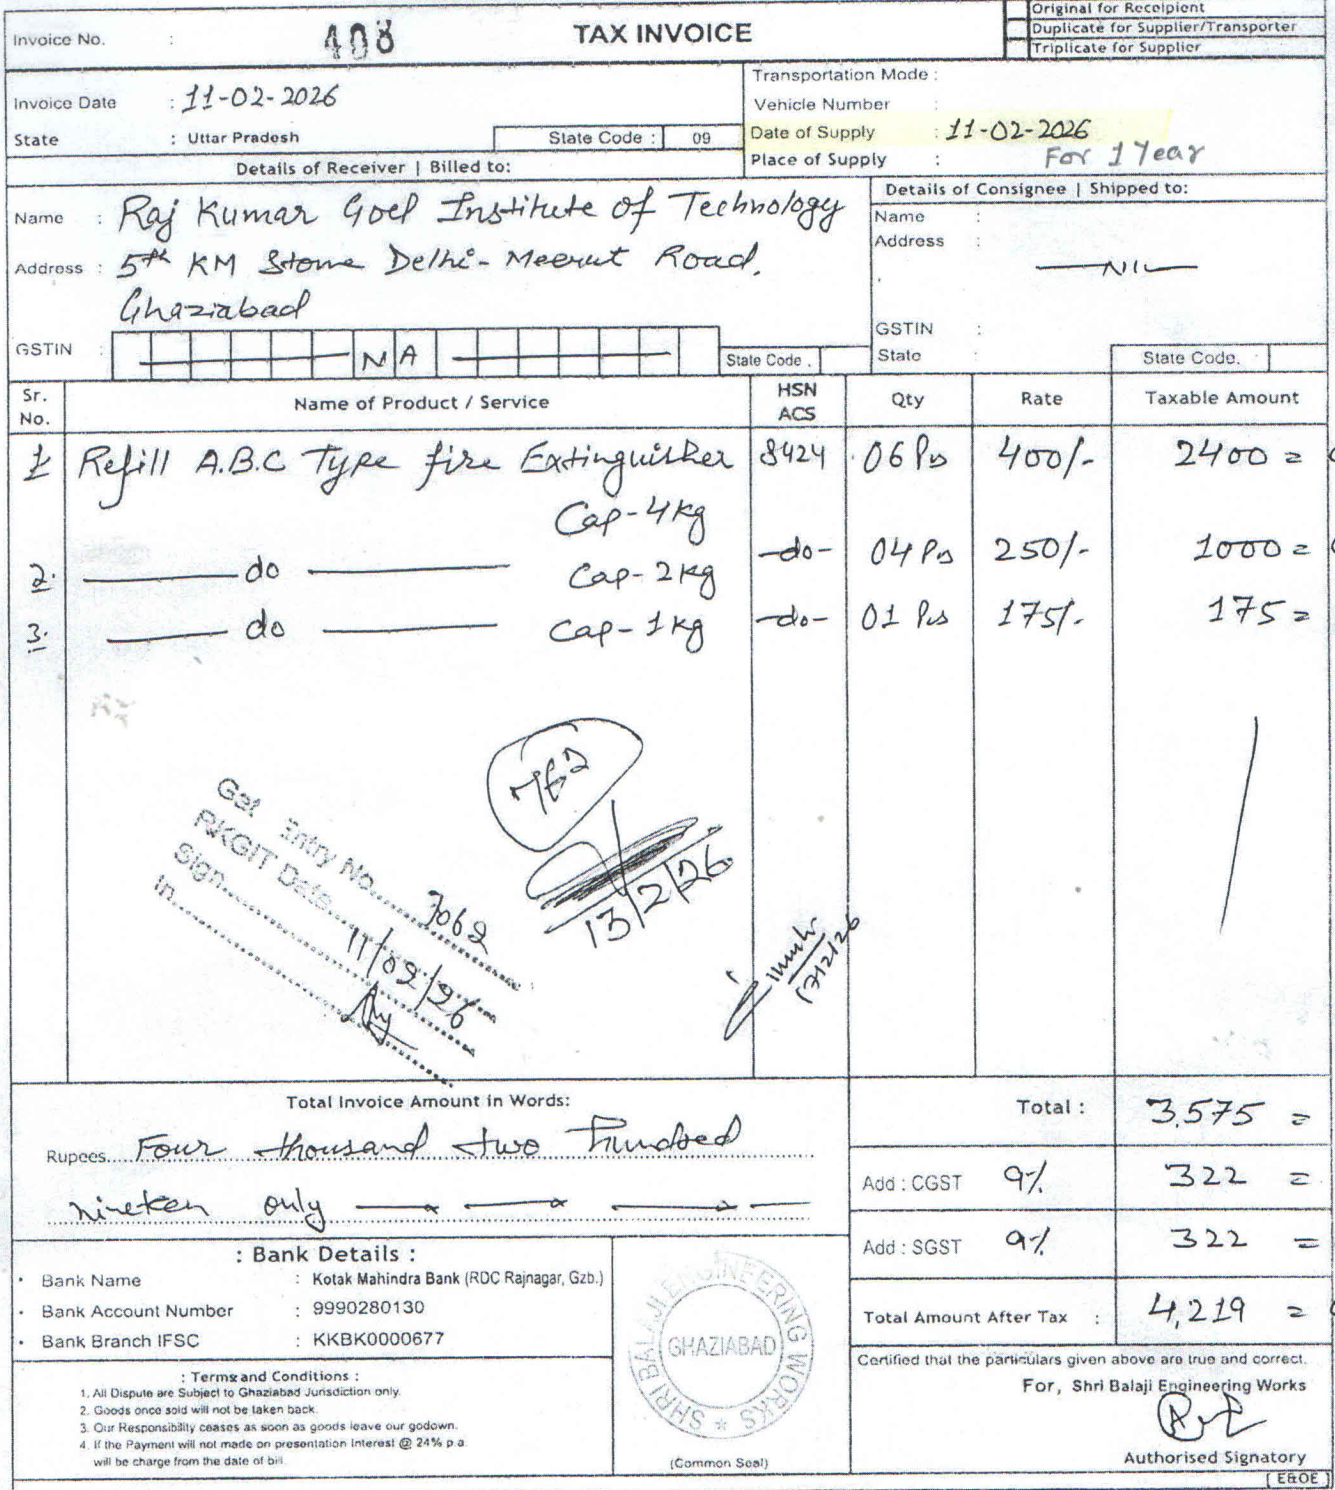 Original for Receipient
Duplicate for Supplier/Transporter
Triplicate for Supplier
Invoice No. : 408
TAX INVOICE
Invoice Date : 11-02-2026
State : Uttar Pradesh State Code : 09
Transportation Mode :
Vehicle Number :
Date of Supply : 11-02-2026
Place of Supply : For 1 Year
Details of Receiver | Billed to:
Name : Raj Kumar Goel Institute of Technology
Address : 5th KM Stone Delhi-Meerut Road,
Ghaziabad
GSTIN : NA State Code .
Details of Consignee | Shipped to:
Name :
Address :
NIL
GSTIN :
State : State Code.
Sr. No. Name of Product / Service HSN ACS Qty Rate Taxable Amount
1 Refill A.B.C Type fire Extinguisher 8424 06 Ps 400/- 2400 =
Cap-4kg
2. do Cap-2kg -do- 04 Ps 250/- 1000 =
3. do Cap-1kg -do- 01 Ps 175/- 175 =
762
13/2/26
Gat Entry No. 7062
RKGIT Date 11/02/26
Sign
In
Total Invoice Amount in Words:
Rupees Four thousand two hundred
nineteen only
Total : 3,575 =
Add : CGST 9% 322 =
Add : SGST 9% 322 =
Total Amount After Tax : 4,219 =
: Bank Details :
• Bank Name : Kotak Mahindra Bank (RDC Rajnagar, Gzb.)
• Bank Account Number : 9990280130
• Bank Branch IFSC : KKBK0000677
: Terms and Conditions :
1. All Dispute are Subject to Ghaziabad Jurisdiction only.
2. Goods once sold will not be taken back.
3. Our Responsibility ceases as soon as goods leave our godown.
4. If the Payment will not made on presentation Interest @ 24% p.a.
will be charge from the date of bill.
SHRI BALAJI ENGINEERING WORKS
GHAZIABAD
(Common Seal)
Certified that the particulars given above are true and correct.
For, Shri Balaji Engineering Works
Authorised Signatory
[ E&OE ]